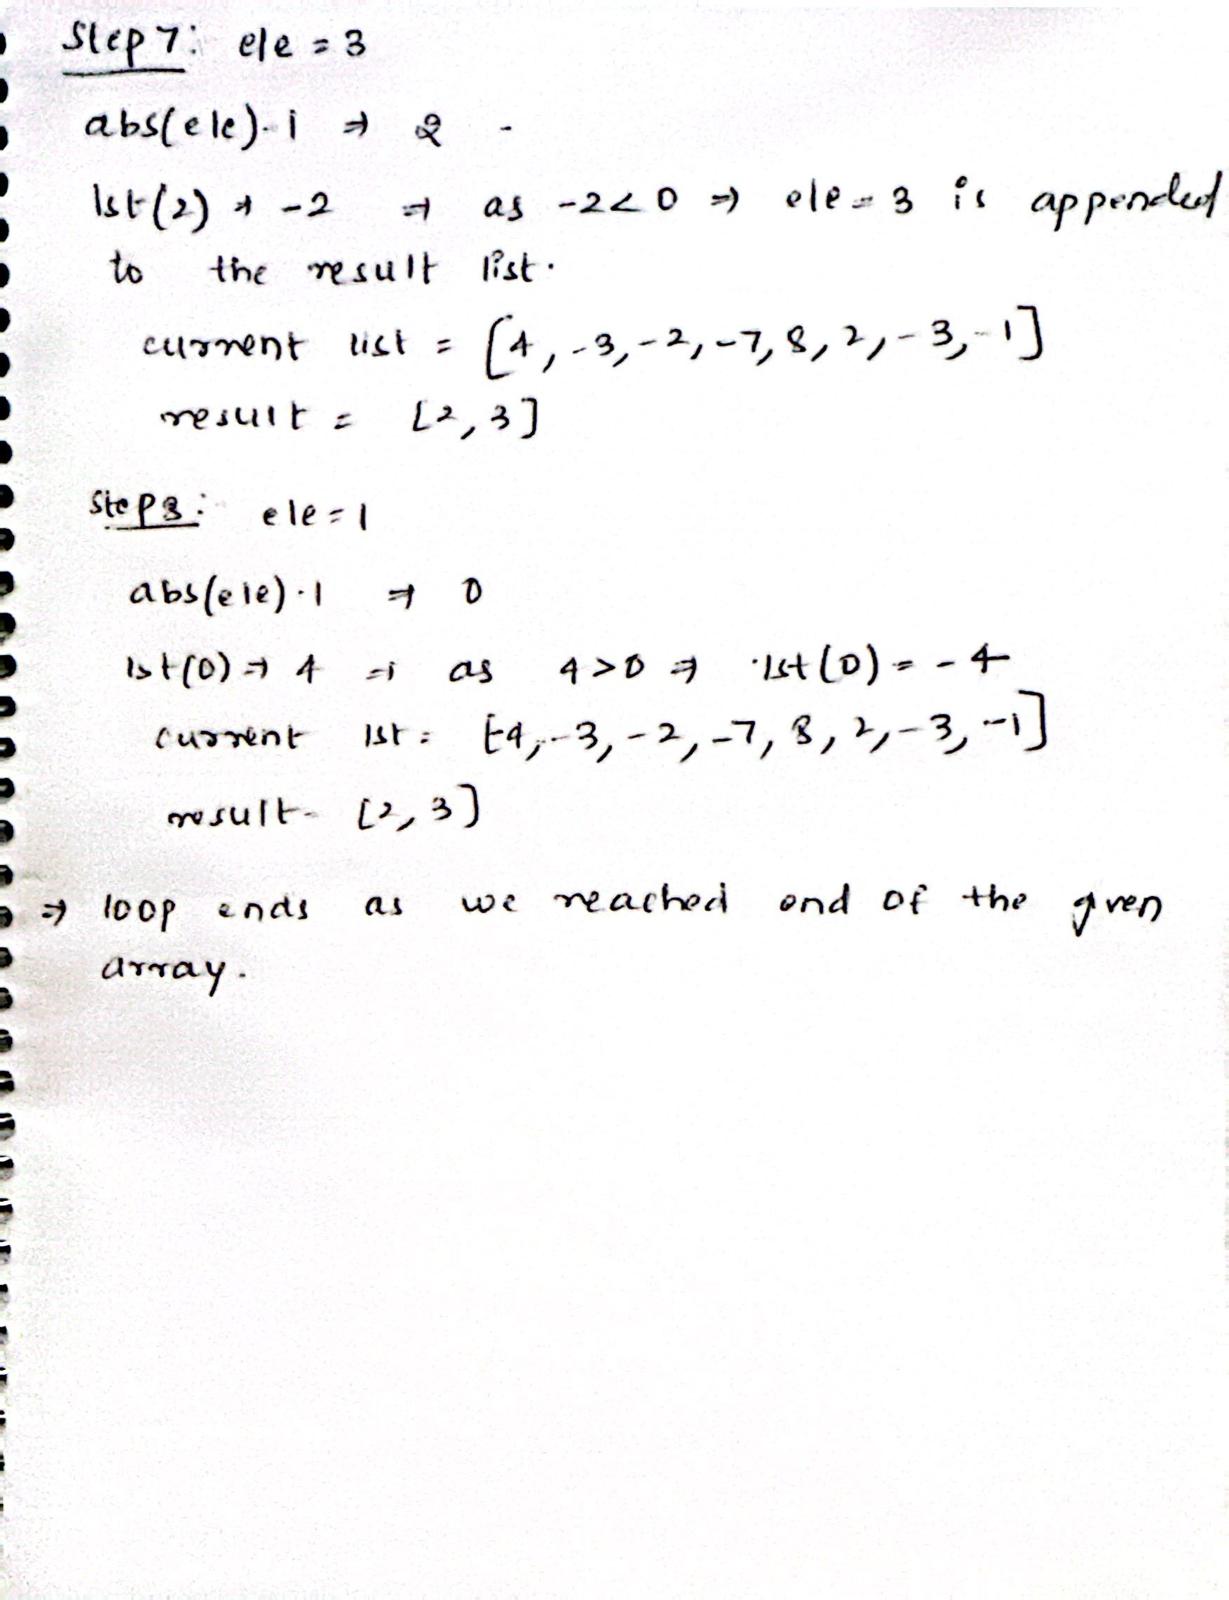 Step 7: ele = 3
abs(ele)-1 ⇒ 2
lst(2) ⇒ -2 ⇒ as -2<0 ⇒ ele = 3 is appended
to the result list.
current list = [4, -3, -2, -7, 8, 2, -3, -1]
result = [2, 3]
Step 8: ele = 1
abs(ele)-1 ⇒ 0
lst(0) ⇒ 4 ⇒ as 4>0 ⇒ lst(0) = -4
current lst = [-4, -3, -2, -7, 8, 2, -3, -1]
result = [2, 3]
⇒ loop ends as we reached end of the given
array.